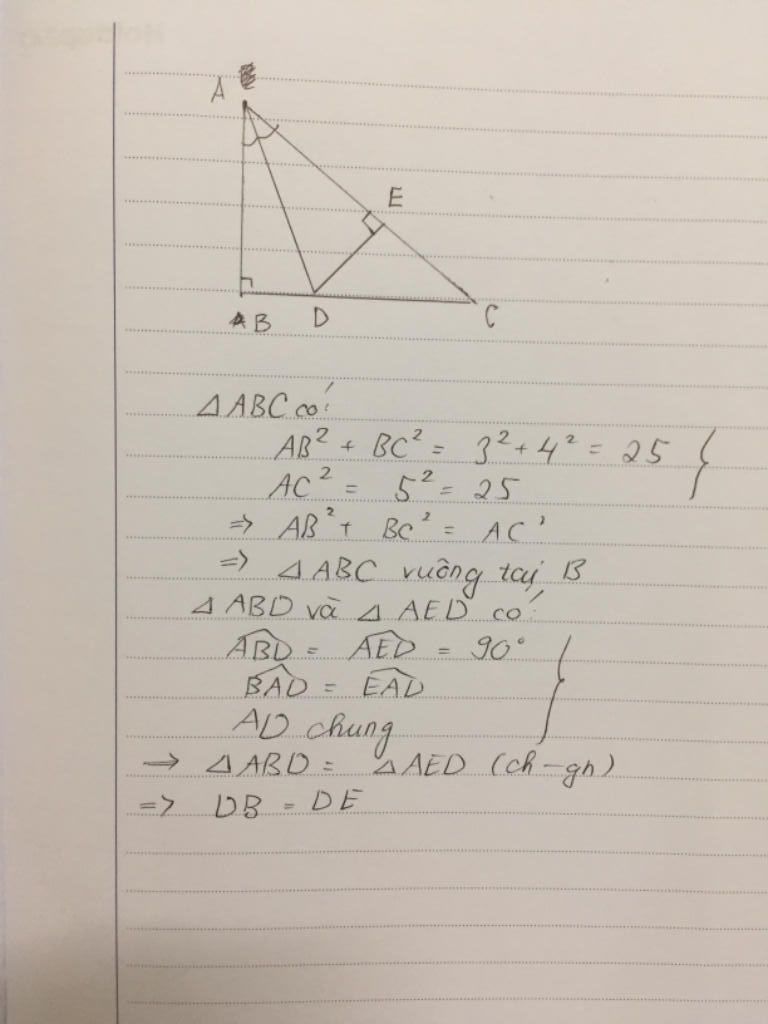 A
E
B
D
C
△ABC có:
AB² + BC² = 3² + 4² = 25
AC² = 5² = 25
⇒ AB² + BC² = AC²
⇒ △ABC vuông tại B
△ABD và △AED có:
\widehat{ABD} = \widehat{AED} = 90°
\widehat{BAD} = \widehat{EAD}
AD chung
⇒ △ABD = △AED (ch-gn)
⇒ DB = DE